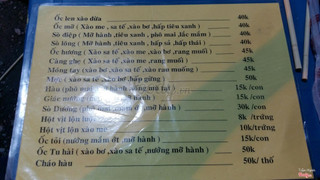 Ốc len xào dừa 40k
Ốc mỡ ( Xào me , sa tế , xào bơ ,hấp tiêu xanh ) 40k
Sò điệp ( Mỡ hành ,tiêu xanh , phô mai ,lắc mắm ) 40k
Sò lông ( Mỡ hành ,tiêu xanh , hấp sả ,hấp thái ) 40k
Ốc hương ( Xào sa tế , xào me ,xào bơ ,rang muối ) 45k
Càng ghẹ ( Xào sa tế , xào me ,xào bơ ,rang muối ) 45k
Móng tay ( xào bơ ,xào sa tế ,xào rau muống ) 45k
50k
Hàu (phô mai 15k /con
mỡ hành ) 15k/con
Sò Dương (phô mai 30k/con
Hột vịt lộn 8k /trứng
Hột vịt lộn xào me 10k/trứng
Ốc tỏi ( nướng mắm ớt mỡ hành ) 15k/con
Ốc Tu hài ( xào bơ ,xào sa tế ,nướng mỡ hành ) 50k
Cháo hàu 50k/ thố